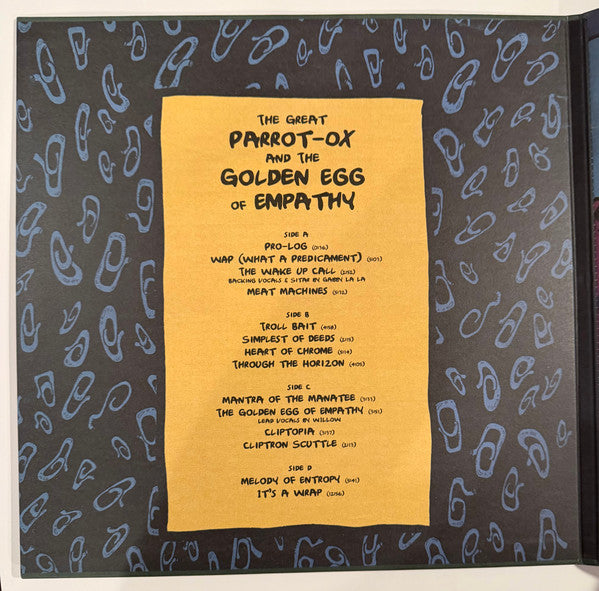 THE GREAT
PARROT-OX
AND THE
GOLDEN EGG
OF EMPATHY
SIDE A
PRO-LOG (0:16)
WAP (WHAT A PREDICAMENT) (5:07)
THE WAKE UP CALL (2:52)
BACKING VOCALS & SITAR BY GABBY LA LA
MEAT MACHINES (5:12)
SIDE B
TROLL BAIT (4:58)
SIMPLEST OF DEEDS (2:15)
HEART OF CHROME (5:14)
THROUGH THE HORIZON (4:05)
SIDE C
MANTRA OF THE MANATEE (3:33)
THE GOLDEN EGG OF EMPATHY (3:51)
LEAD VOCALS BY WILLOW
CLIPTOPIA (3:37)
CLIPTRON SCUTTLE (2:13)
SIDE D
MELODY OF ENTROPY (5:41)
IT'S A WRAP (12:56)